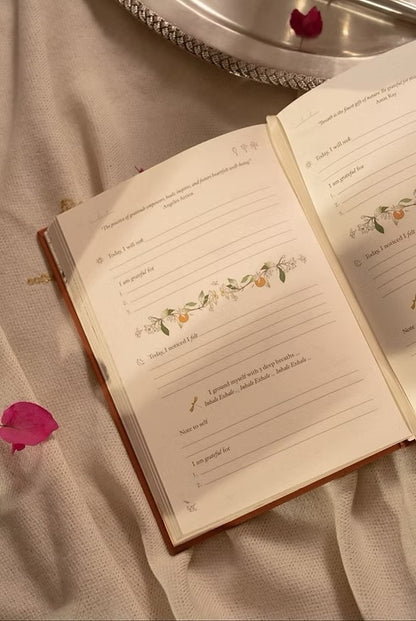 "The practice of gratitude empowers, heals, inspires, and fosters heartfelt well-being."
Angeles Arrien
Today, I will
I am grateful for
1.
2.
Today, I noticed I felt
I ground myself with 3 deep breaths ...
Inhale Exhale ... Inhale Exhale ... Inhale Exhale ...
Note to self
I am grateful for
1.
2.
"Breath is the finest gift of nature. Be grateful
Amit Ray
Today, I will
I am grateful for
1.
2.
Today, I noticed I felt
I
Note